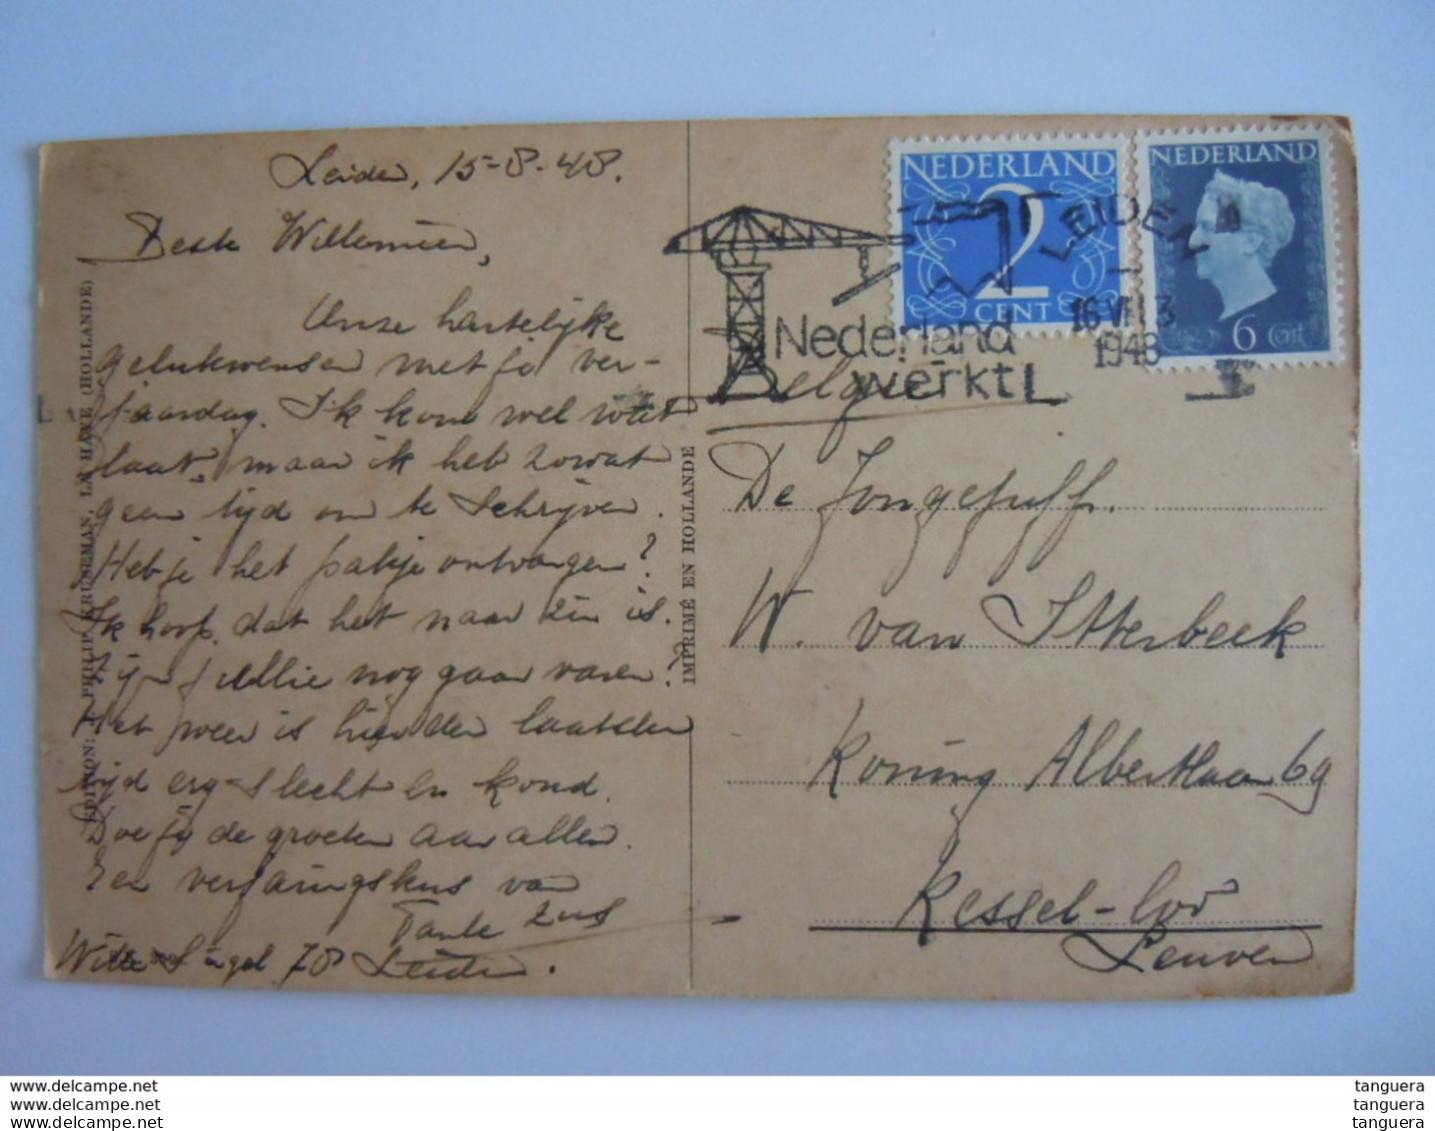 Leiden, 15-8-48.
Beste Willemien,
Onze hartelijke
gelukwensen met je ver-
jaardag. Ik kom wel wat
laat, maar ik heb zowat
geen tijd om te schrijven.
Heb je het pakje ontvangen?
Ik hoop dat het naar zin is.
Zijn jullie nog gaan varen?
Het weer is hier den laatsten
tijd erg slecht en koud.
Doe jij de groeten aan allen.
Een verjaringskus van
Tante Zus
Witte Singel 70 Leiden.
EDITION: J. PHILIP KRUSEMAN, LA HAYE (HOLLANDE)
IMPRIMÉ EN HOLLANDE
NEDERLAND
2
CENT
NEDERLAND
6 Cent
LEIDEN
1948
Nederland
werkt!
België
De Jongejuff.
W. van Itterbeek
Koning Albertlaan 69
Kessel-Loo
Leuven
www.delcampe.net
www.delcampe.net
www.delcampe.net
tanguera
tanguera
tanguera